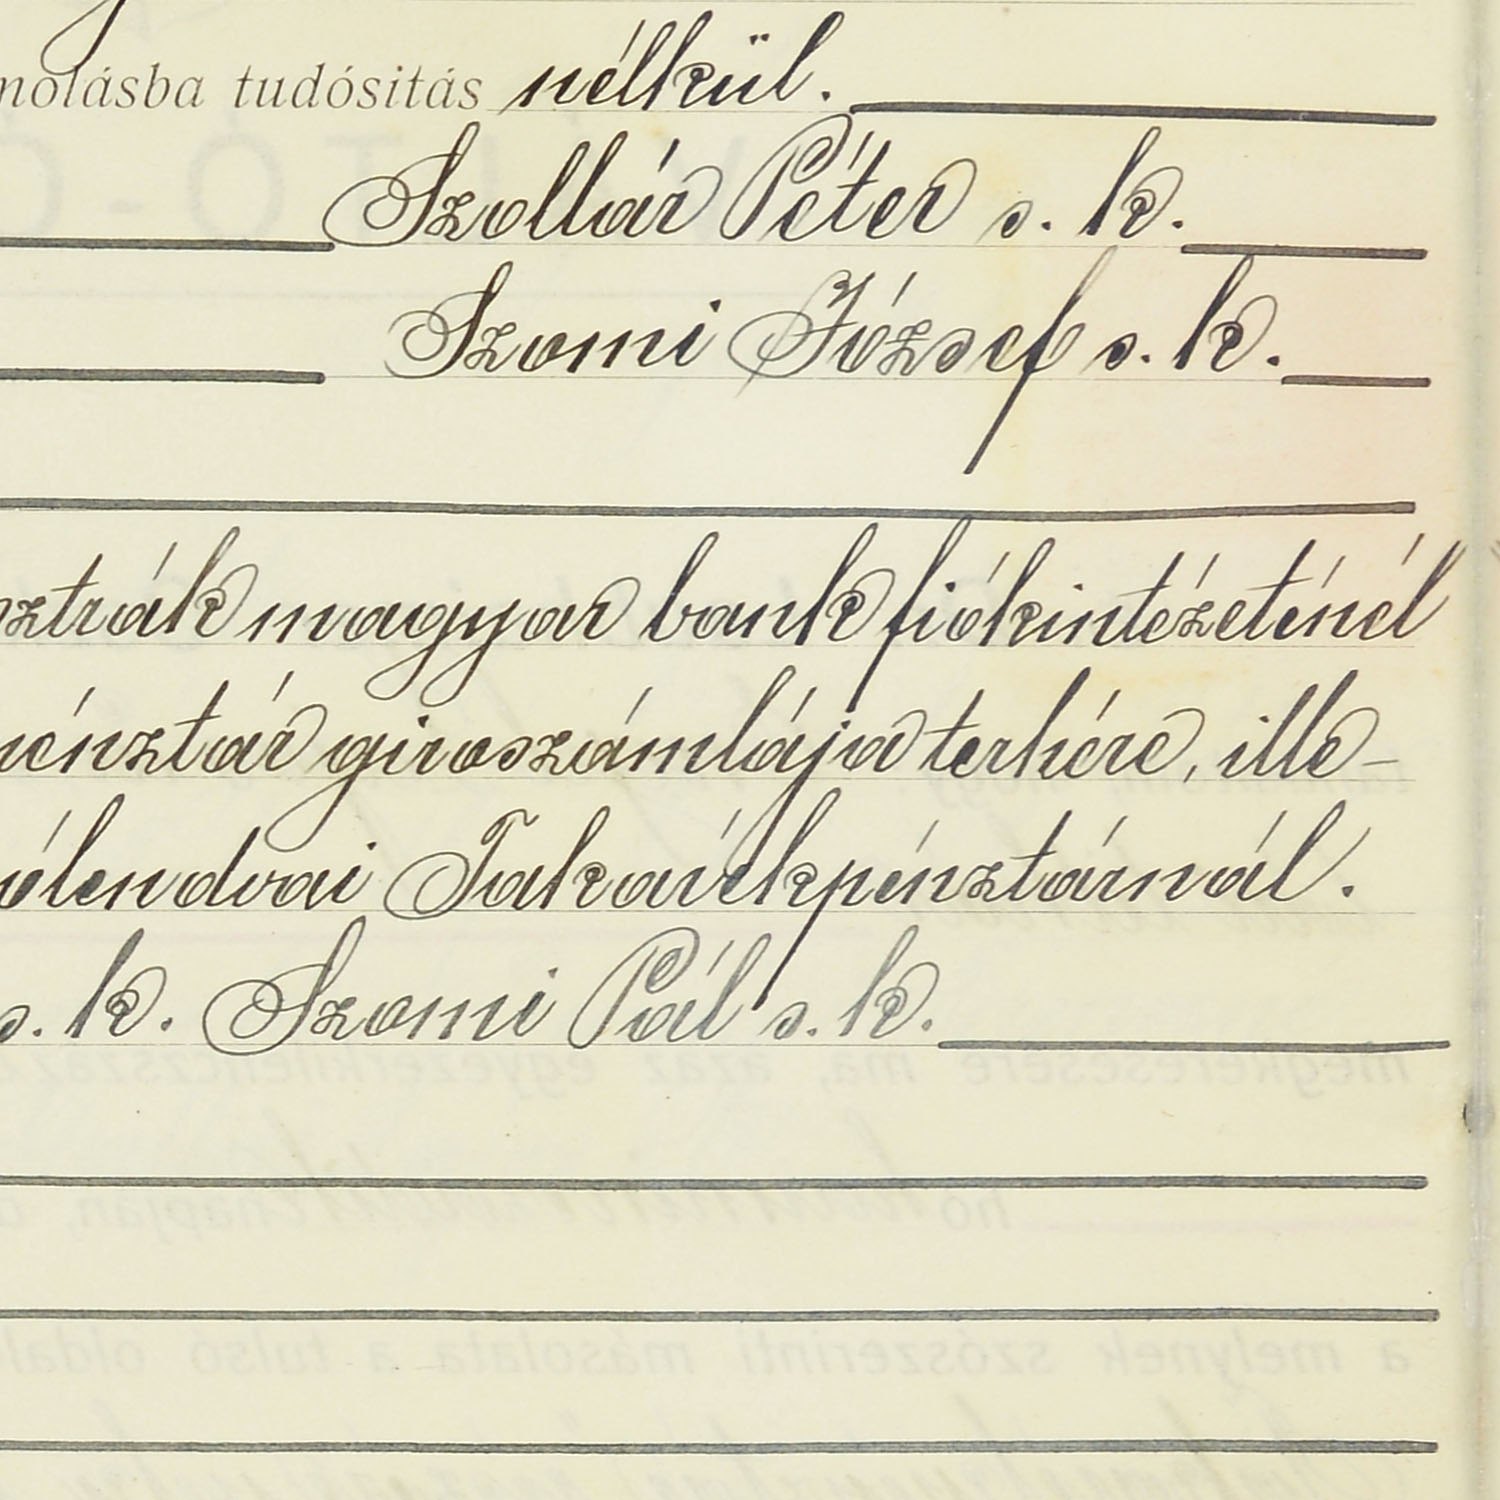 nolásba tudósitás nélkül.
Szollár Péter s. k.
Szomi József s. k.
sztrák magyar bank fiókintézeténél
pénztár giroszámlája terhére, ille-
ólendvai Takarékpénztárnál.
s. k. Szomi Pál s. k.